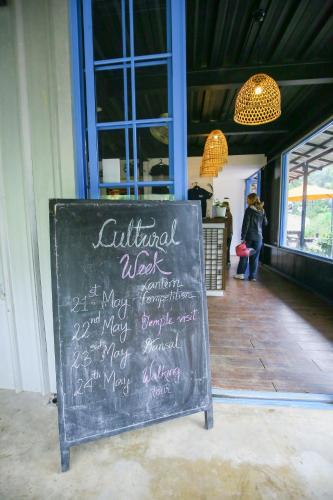 Cultural
Week
21st May Lantern Competition
22nd May Temple visit
23rd May Hansal
24th May Walking tour